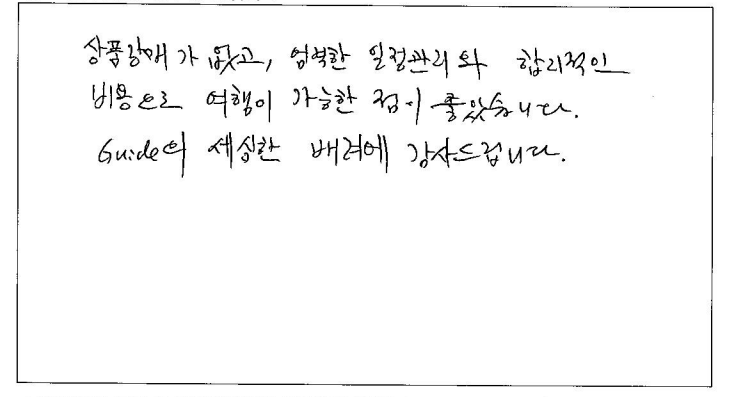 상품강매가 없고, 엄격한 일정관리와 합리적인
비용으로 여행이 가능한 점이 좋았습니다.
Guide의 세심한 배려에 감사드립니다.